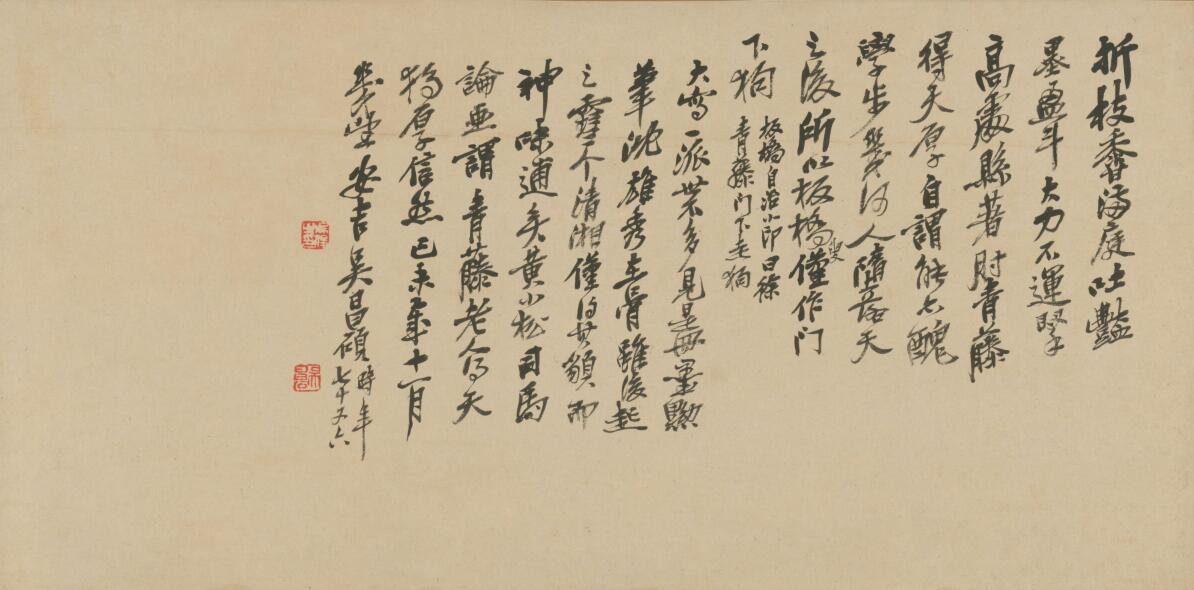 折枝香滿庭吐豔
墨盈斗大力不運擊
高處縣著肘青藤
得天厚自謂能亦醜
學步幾何人隨落天
之後所以板橋叟僅作門
下狗
板橋自治小印曰徐
青藤門下走狗
大寫一派世不多見是册墨點
筆沈雄秀在骨雖後起
之雪个清湘僅得其貌而
神味逋矣黃小松司馬
論畫謂青藤老人得天
獨厚信然己未年十一月
安吉吳昌碩時年
七十又六